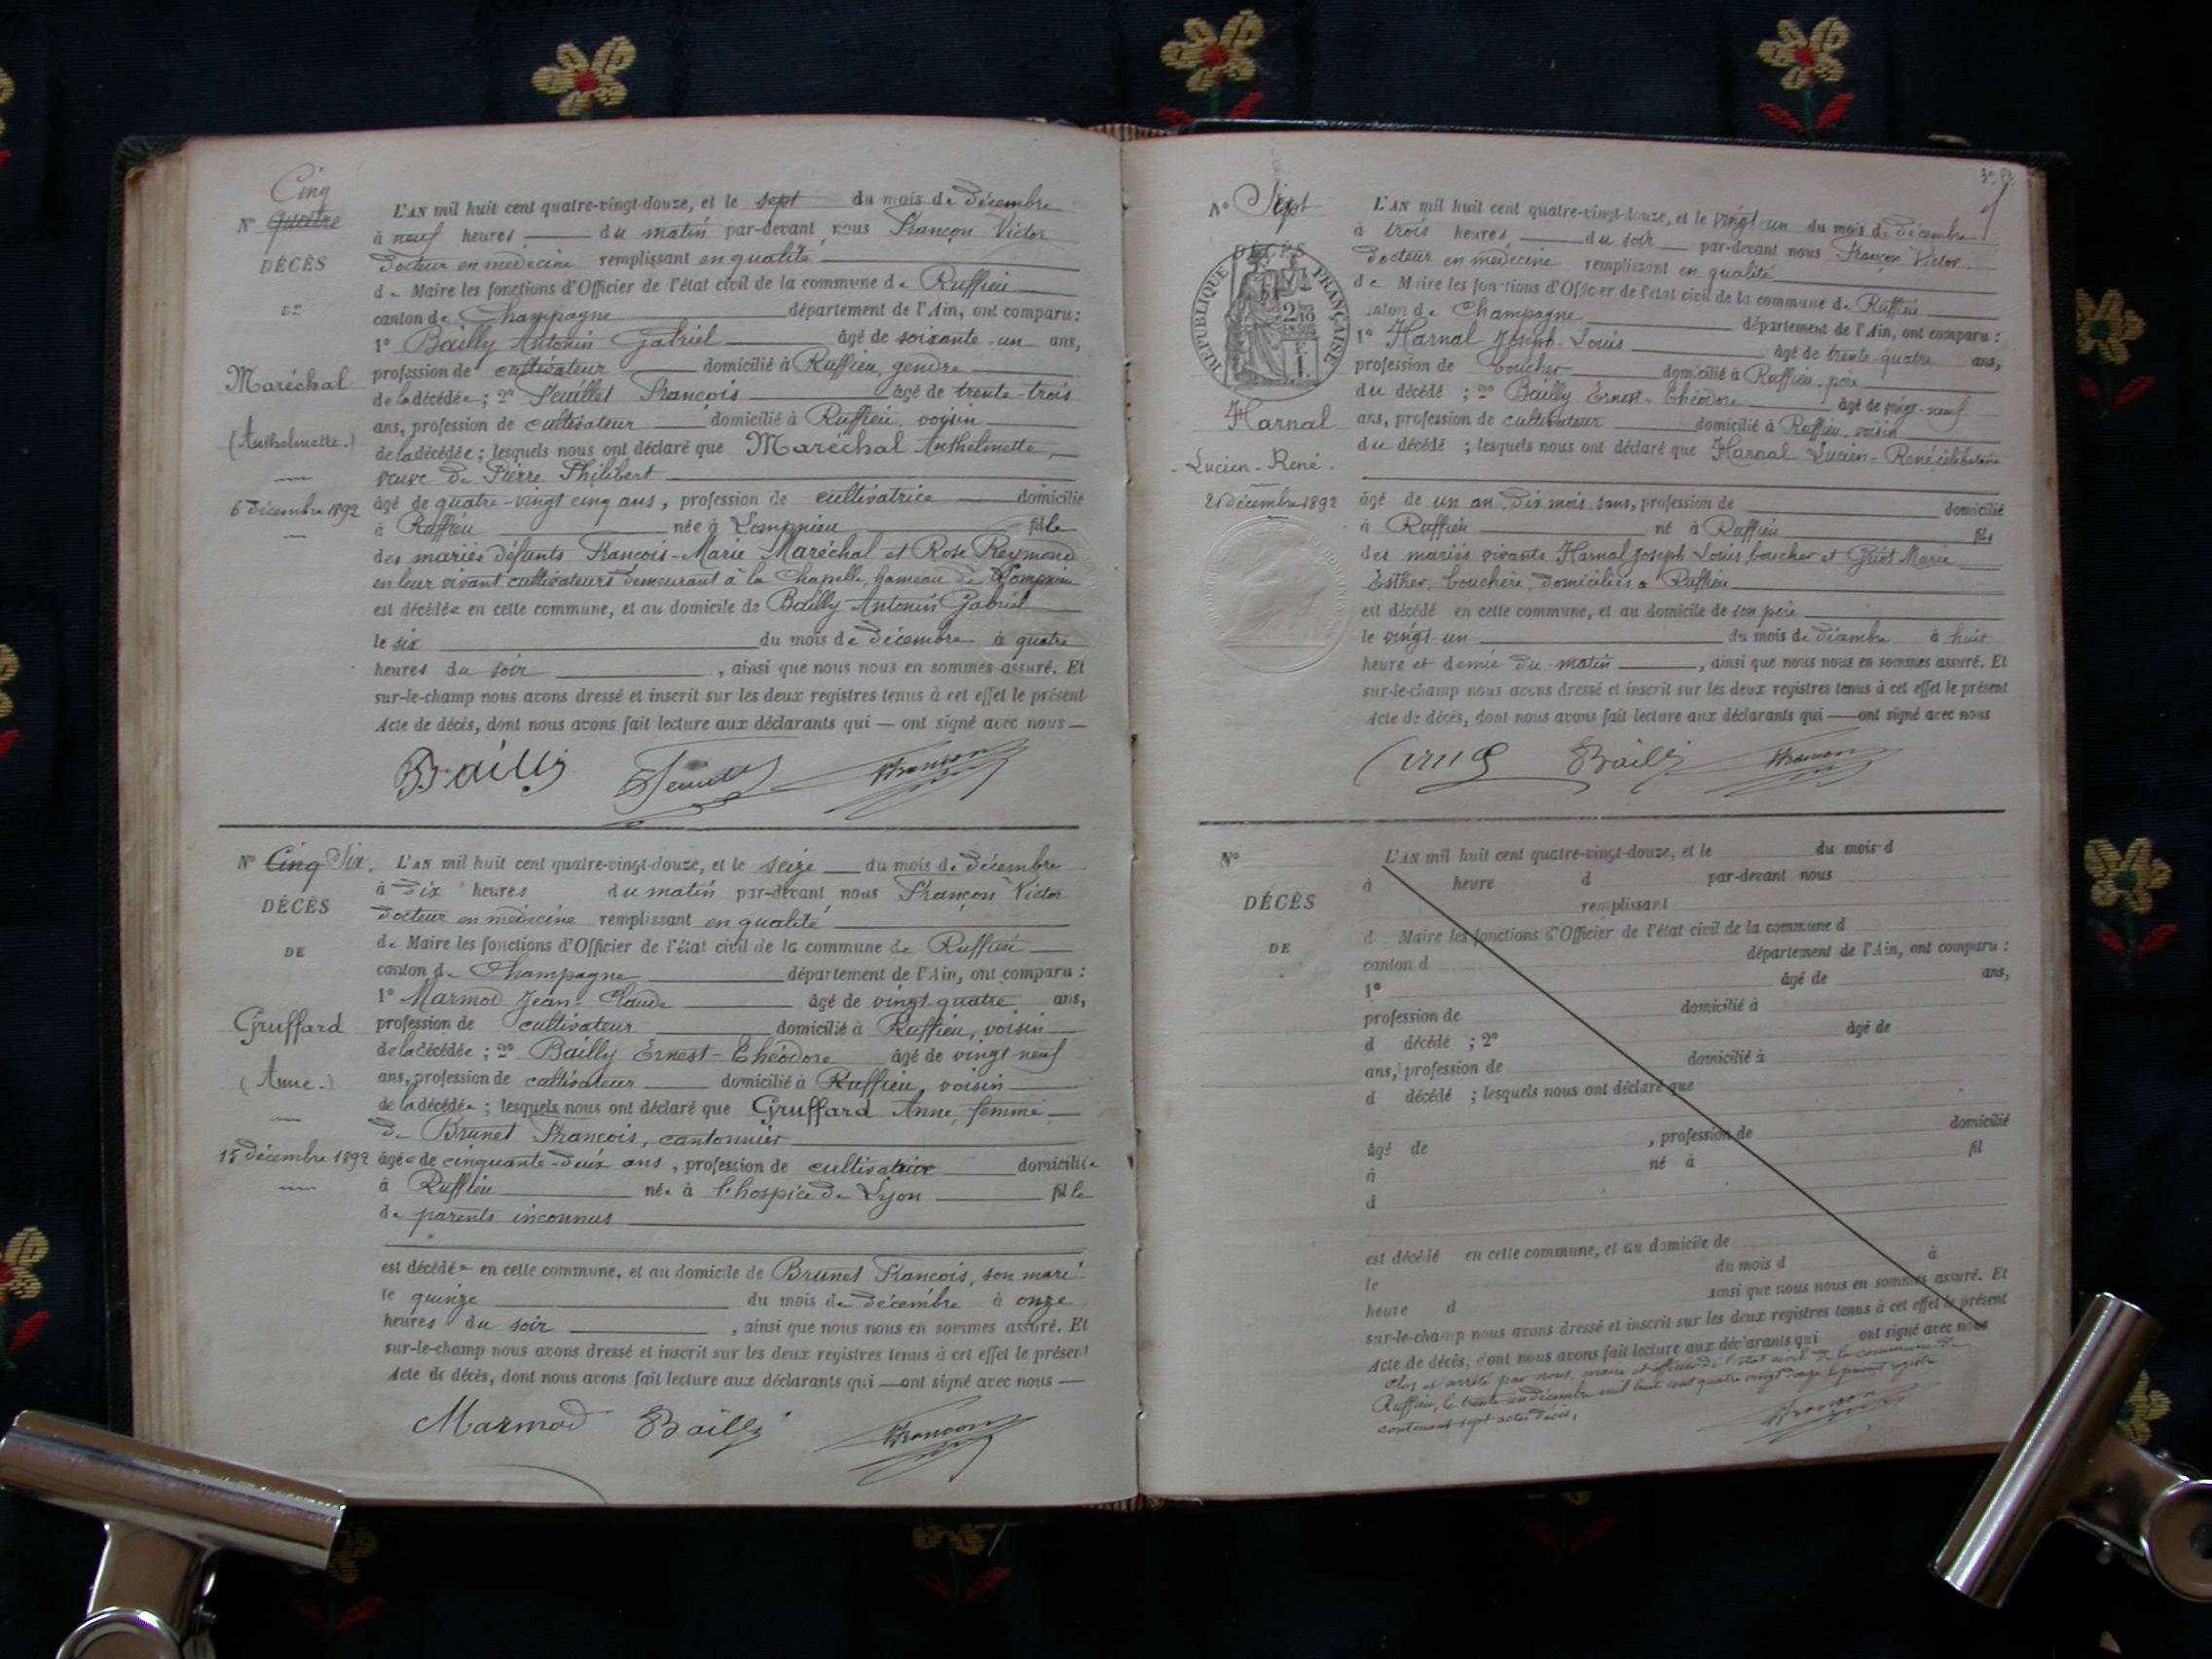 Cinq
N° Quatre
DÉCÈS
DE
Maréchal
(Anthelmette.)
6 Décembre 1892
L'AN mil huit cent quatre-vingt-douze, et le sept du mois de Décembre
à neuf heures du matin par-devant nous Françon Victor
Docteur en médecine remplissant en qualité
de Maire les fonctions d'Officier de l'état civil de la commune de Ruffieu
canton de Champagne département de l'Ain, ont comparu :
1° Bailly Antonin Gabriel âgé de soixante-un ans,
profession de cultivateur domicilié à Ruffieu, gendre
de la décédée ; 2° Feuillet François âgé de trente-trois
ans, profession de cultivateur domicilié à Ruffieu, voisin
de la décédée ; lesquels nous ont déclaré que Maréchal Anthelmette,
veuve de Pierre Philibert
âgé de quatre-vingt cinq ans, profession de cultivatrice domicilié
à Ruffieu née à Lompnieu fille
des mariés défunts François-Marie Maréchal et Rose Reymond
en leur vivant cultivateurs demeurant à la Chapelle, hameau de Lompnieu
est décédée en cette commune, et au domicile de Bailly Antonin Gabriel
le six du mois de Décembre à quatre
heures du soir, ainsi que nous nous en sommes assuré. Et
sur-le-champ nous avons dressé et inscrit sur les deux registres tenus à cet effet le présent
Acte de décès, dont nous avons fait lecture aux déclarants qui — ont signé avec nous —
Bailly Françon
N° Cinq Six.
DÉCÈS
DE
Gruffard
(Anne.)
15 Décembre 1892
L'AN mil huit cent quatre-vingt-douze, et le seize du mois de Décembre
à dix heures du matin par-devant nous Françon Victor
Docteur en médecine remplissant en qualité
de Maire les fonctions d'Officier de l'état civil de la commune de Ruffieu
canton de Champagne département de l'Ain, ont comparu :
1° Marmod Jean-Claude âgé de vingt-quatre ans,
profession de cultivateur domicilié à Ruffieu, voisin
de la décédée ; 2° Bailly Ernest-Théodore âgé de vingt neuf
ans, profession de cultivateur domicilié à Ruffieu, voisin
de la décédée ; lesquels nous ont déclaré que Gruffard Anne, femme
de Brunet François, cantonnier
âgée de cinquante-deux ans, profession de cultivatrice domiciliée
à Ruffieu née à l'hospice de Lyon fille
de parents inconnus
est décédée en cette commune, et au domicile de Brunet François, son mari
le quinze du mois de Décembre à onze
heures du soir, ainsi que nous nous en sommes assuré. Et
sur-le-champ nous avons dressé et inscrit sur les deux registres tenus à cet effet le présent
Acte de décès, dont nous avons fait lecture aux déclarants qui — ont signé avec nous —
Marmod Bailly Françon
N° Sept
DÉCÈS
RÉPUBLIQUE FRANÇAISE
Harnal
Lucien-René.
21 Décembre 1892
L'AN mil huit cent quatre-vingt-douze, et le vingt-un du mois de Décembre
à trois heures du soir par-devant nous Françon Victor
Docteur en médecine remplissant en qualité
de Maire les fonctions d'Officier de l'état civil de la commune de Ruffieu
canton de Champagne département de l'Ain, ont comparu :
1° Harnal Joseph-Louis âgé de trente-quatre ans,
profession de boucher domicilié à Ruffieu, père
du décédé ; 2° Bailly Ernest-Théodore âgé de vingt-neuf
ans, profession de cultivateur domicilié à Ruffieu, voisin
du décédé ; lesquels nous ont déclaré que Harnal Lucien-René célibataire
âgé de un an, dix mois, sans, profession de domicilié
à Ruffieu né à Ruffieu fils
des mariés vivants Harnal Joseph Louis, boucher et Griot Marie
Esther, bouchère, domiciliés à Ruffieu
est décédé en cette commune, et au domicile de son père
le vingt-un du mois de Décembre à huit
heure et demie du matin, ainsi que nous nous en sommes assuré. Et
sur-le-champ nous avons dressé et inscrit sur les deux registres tenus à cet effet le présent
Acte de décès, dont nous avons fait lecture aux déclarants qui — ont signé avec nous
Bailly Françon
N°
DÉCÈS
DE
L'AN mil huit cent quatre-vingt-douze, et le du mois d
à heure d par-devant nous
remplissant
d Maire les fonctions d'Officier de l'état civil de la commune d
canton d département de l'Ain, ont comparu :
1° âgé de ans,
profession de domicilié à
d décédé ; 2° âgé de
ans, profession de domicilié à
d décédé ; lesquels nous ont déclaré que
âgé de , profession de domicilié
à né à fil
d
est décédé en cette commune, et au domicile de
le du mois d à
heure d ainsi que nous nous en sommes assuré. Et
sur-le-champ nous avons dressé et inscrit sur les deux registres tenus à cet effet le présent
Acte de décès, dont nous avons fait lecture aux déclarants qui ont signé avec nous
Clos et arrêté par nous, maire et officier de l'état civil de la commune de
Ruffieu, le trente un décembre mil huit cent quatre vingt douze le présent registre
contenant sept actes décès.
Françon